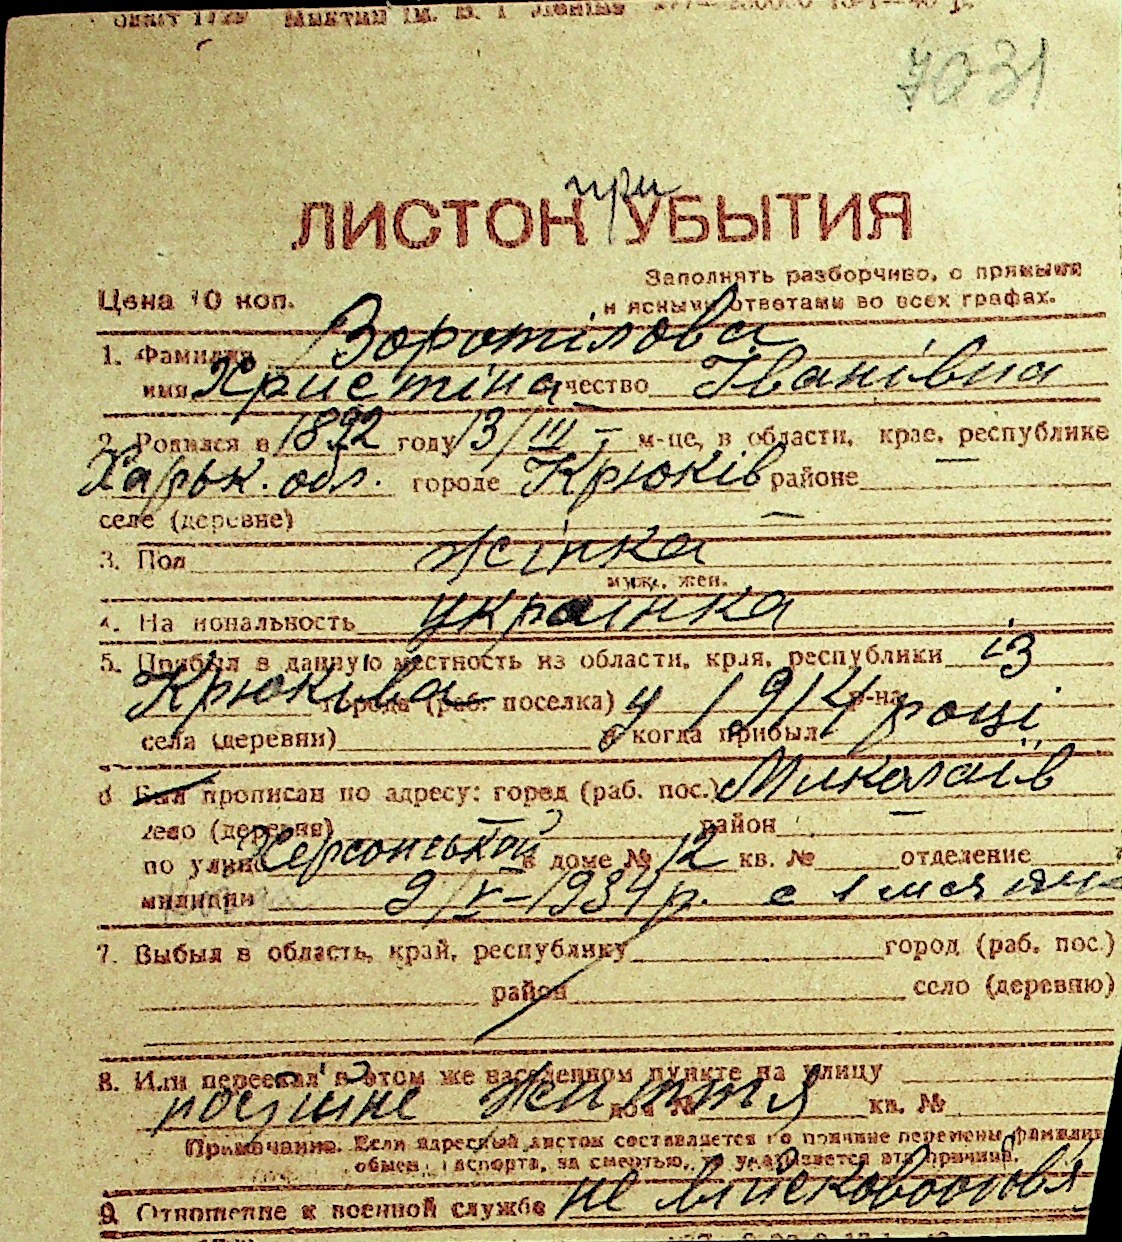 7031
при
ЛИСТОК УБЫТИЯ
Заполнять разборчиво, с прямыми
Цена 10 коп.
и ясными ответами во всех графах.
1. Фамилия Воротілова
имя Христіна отчество Іванівна
2. Родился в 1892 году 13/III – м-це, в области, крае, республике
Харьк. обл. городе Крюків районе
селе (деревне) —
3. Пол жінка
муж., жен.
4. Национальность українка
5. Прибыл в данную местность из области, края, республики із
Крюківа города (раб. поселка) р-на
села (деревни) и когда прибыл у 1914 році
6 Был прописан по адресу: город (раб. пос.) Миколаїв
село (деревня) — район —
по улице Херсонській в доме № 12 кв. № отделение
милиции 9/V–1934 р. с
7. Выбыл в область, край, республику город (раб. пос.)
район село (деревню)
8. Или переехал в этом же населенном пункте на улицу
постійне життя дом № кв. №
Примечание. Если адресный листок составляется по причине перемены фамилии,
обмен паспорта, за смертью, то указывается эта причина.
9. Отношение к военной службе не військовообовя